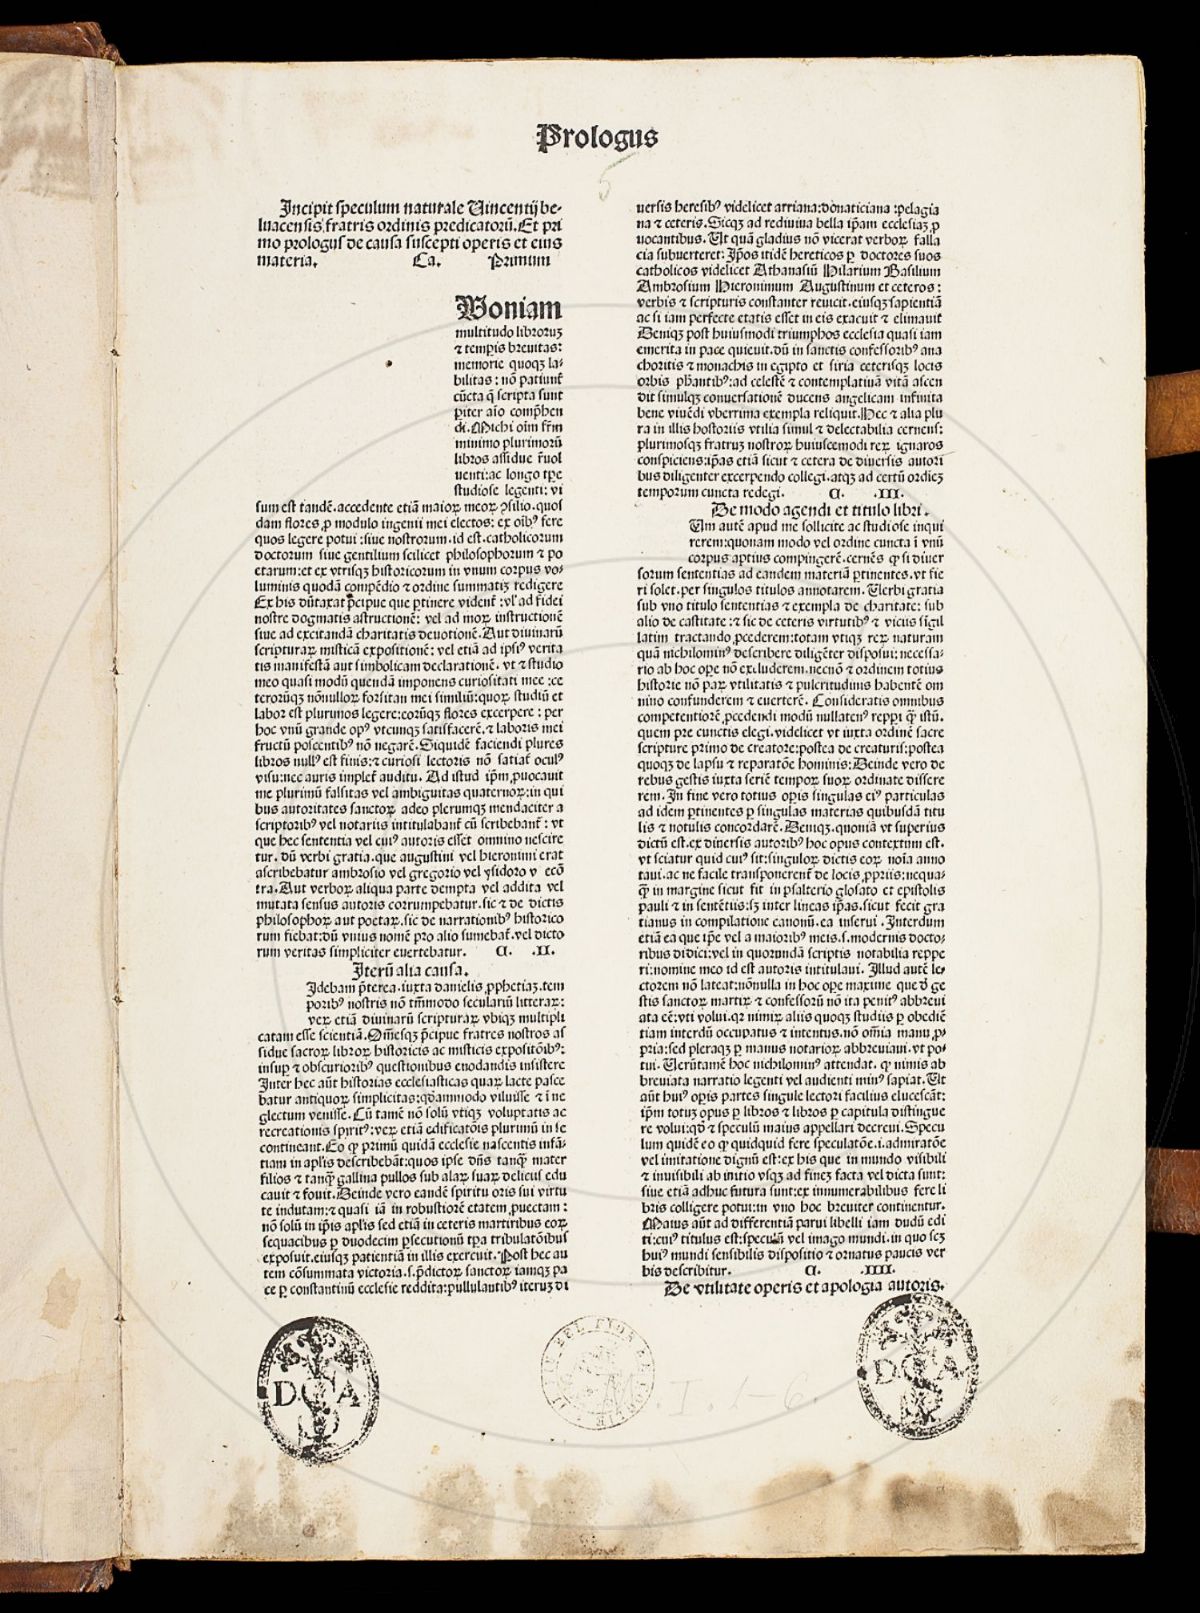 Prologus
Incipit speculum naturale Vincentij be-
luacensis fratris ordinis predicatorū. Et pri
mo prologus de causa suscepti operis et eius
materia. Ca. Primum
Uoniam
multitudo libroruꝫ
⁊ temꝑis breuitas:
memorie quoqꝫ la-
bilitas: nō patiunt̄
cūcta q̄ scripta sunt
ꝑiter aīo comp̄hen
di. Michi oīm fr̄m
minimo plurimorū
libros assidue r̄uol
uenti: ac longo tꝑe
studiose legenti: vi
sum est tandē. accedente etiā maioꝝ meoꝝ ꝯsilio. quos
dam flores ꝓ modulo ingenii mei electos: ex oībꝰ fere
quos legere potui: siue nostrorum. id est. catholicorum
doctorum siue gentilium scilicet philosophorum ⁊ po
etarum: et ex vtrisqꝫ historicorum in vnum corpus vo-
luminis quodā compēdio ⁊ ordine summatiꝫ redigere
Ex his dūtaxat p̄cipue que ꝑtinere vident̄: vl̓ ad fidei
nostre dogmatis astructionē: vel ad moꝝ instructionē
siue ad excitandā charitatis deuotionē. Aut diuinarū
scripturaꝝ misticā expositionē: vel etiā ad ipsiꝰ verita
tis manifestā aut simbolicam declarationē. vt ⁊ studio
meo quasi modū quendā imponens curiositati mee: ce
terorūqꝫ nōnulloꝝ forsitan mei similiū: quoꝝ studiū et
labor est plurimos legere: eorūqꝫ flores excerpere: per
hoc vnū grande opꝰ vtcunqꝫ satisfacerē. ⁊ laboris mei
fructū poscentibꝰ nō negarē. Siquidē faciendi plures
libros nullꝰ est finis: ⁊ curiosi lectoris nō satiat̄ oculꝰ
visu: nec auris implet̄ auditu. Ad istud ip̄m ꝓuocauit
me plurimū falsitas vel ambiguitas quaternoꝝ: in qui
bus autoritates sanctoꝝ adeo plerumqꝫ mendaciter a
scriptoribꝰ vel notariis intitulabant̄ cū scribebant̄: vt
que hec sententia vel cuiꝰ autoris esset omnino nescire
tur. dū verbi gratia. que augustini vel hieronimi erat
ascribebatur ambrosio vel gregorio vel ysidoro v ecō
tra. Aut verboꝝ aliqua parte dempta vel addita vel
mutata sensus autoris corrumpebatur. sic ⁊ de dictis
philosophoꝝ aut poetaꝝ. sic de narrationibꝰ historico
rum fiebat: dū vnius nomē pro alio sumebat̄. vel dicto
rum veritas simpliciter euertebatur. C. .II.
Iterū alia causa.
Idebam p̄terea. iuxta danielis ꝓphetiaꝫ. tem
poribꝰ nostris nō tm̄modo seculariū litteraꝝ:
veꝝ etiā diuinarū scripturaꝝ vbiqꝫ multipli
catam esse scientiā. Om̄esqꝫ p̄cipue fratres nostros as
sidue sacroꝝ libroꝝ historicis ac misticis expositōibꝰ:
insuꝑ ⁊ obscurioribꝰ questionibus enodandis insistere
Inter hec aūt historias ecclesiasticas quaꝝ lacte pasce
batur antiquoꝝ simplicitas: qđāmmodo viluisse ⁊ ī ne
glectum venisse. Cū tamē nō solū vtiqꝫ voluptatis ac
recreationis spiritꝰ: veꝝ etiā edificatōis plurimū in se
contineant. Eo ꝙ primū quidā ecclesie nascentis infā-
tiam in apl̓is describebāt: quos ipse dn̄s tanqꝫ mater
filios ⁊ tanqꝫ gallina pullos sub alaꝝ suaꝝ deliciis edu
cauit ⁊ fouit. Deinde vero eandē spiritu oris sui virtu
te indutam: ⁊ quasi iā in robustiorē etatem ꝓuectam:
nō solū in ip̄is apl̓is sed etiā in ceteris martiribus eoꝝ
sequacibus ꝑ duodecim ꝑsecutionū tꝑa tribulatōibus
exposuit. eiusqꝫ patientiā in illis exercuit. Post hec au
tem cōsummata victoria. s. p̄dictoꝝ sanctoꝝ iamqꝫ pa
ce ꝑ constantinū ecclesie reddita: pullulantibꝰ iteruꝫ di
uersis heresibꝰ videlicet arriana: donaticiana: pelagia
na ⁊ ceteris. Sicqꝫ ad rediuiua bella ip̄am ecclesiaꝫ ꝓ
uocantibus. Ut quā gladius nō vicerat verboꝝ falla
cia subuerteret: Ip̄os itidē hereticos ꝑ doctores suos
catholicos videlicet Athanasiū Hilarium Basilium
Ambrosium Hieronimum Augustinum et ceteros:
verbis ⁊ scripturis constanter reuicit. eiusqꝫ sapientiā
ac si iam perfecte etatis esset in eis exacuit ⁊ elimauit
Deniqꝫ post huiusmodi triumphos ecclesia quasi iam
emerita in pace quieuit. dū in sanctis confessoribꝰ ana
choritis ⁊ monachis in egipto et siria ceterisqꝫ locis
orbis ꝓbantibꝰ: ad celestē ⁊ contemplatiuā vitā ascen
dit simulqꝫ conuersationē ducens angelicam infinita
bene viuēdi vberrima exempla reliquit. Hec ⁊ alia plu
ra in illis hostoriis vtilia simul ⁊ delectabilia cernens:
plurimosqꝫ fratruꝫ nostroꝝ huiuscemodi reꝝ ignaros
conspiciens: ip̄as etiā sicut ⁊ cetera de diuersis autori
bus diligenter excerpendo collegi. atqꝫ ad certū ordieꝫ
temporum cuncta redegi. C. .III.
De modo agendi et titulo libri.
Um autē apud me sollicite ac studiose inqui
rerem: quonam modo vel ordine cuncta ī vnū
corpus aptius compingerē. cernēs ꝙ si diuer
sorum sententias ad eandem materiā ꝑtinentes. vt fie
ri solet. per singulos titulos annotarem. Verbi gratia
sub vno titulo sententias ⁊ exempla de charitate: sub
alio de castitate: ⁊ sic de ceteris virtutibꝰ ⁊ viciis sigil
latim tractando ꝓcederem: totam vtiqꝫ reꝝ naturam
quā nichilominꝰ describere diligēter disposui: necessa-
rio ab hoc oꝑe nō excluderem. necnō ⁊ ordinem totius
historie nō paꝝ vtilitatis ⁊ pulcritudinis habentē om
nino confunderem ⁊ euerterē. Consideratis omnibus
competentiorē ꝓcedendi modū nullatenꝰ repꝑi q̄ istū.
quem pre cunctis elegi. videlicet vt iuxta ordinē sacre
scripture primo de creatore: postea de creaturis: postea
quoqꝫ de lapsu ⁊ reparatōe hominis: Deinde vero de
rebus gestis iuxta seriē tempoꝝ suoꝝ ordinate dissere
rem. In fine vero totius oꝑis singulas eiꝰ particulas
ad idem ꝑtinentes ꝑ singulas materias quibusdā titu
lis ⁊ notulis concordarē. Deniqꝫ. quoniā vt superius
dictū est. ex diuersis autoribꝰ hoc opus contextum est.
vt sciatur quid cuiꝰ sit: singuloꝝ dictis eoꝝ noīa anno
taui. ac ne facile transponerent̄ de locis ꝓpriis: nequa-
q̄ in margine sicut fit in psalterio glosato et epistolis
pauli ⁊ in sentētiis: sꝫ inter lineas ip̄as. sicut fecit gra
tianus in compilatione canonū. ea inserui. Interdum
etiā ea que ip̄e vel a maioribꝰ meis. s. modernis docto-
ribus didici: vel in quorundā scriptis notabilia reppe
ri: nomine meo id est autoris intitulaui. Illud autē le-
ctorem nō lateat: nōnulla in hoc oꝑe maxime que đ ge
stis sanctoꝝ martiꝝ ⁊ confessorū nō ita penitꝰ abbreui
ata eē: vti volui. qꝛ nimiꝝ aliis quoqꝫ studiis ꝑ obediē
tiam interdū occupatus ⁊ intentus. nō om̄ia manu ꝓ-
pria: sed pleraqꝫ ꝑ manus notarioꝝ abbreuiaui. vt po-
tui. Verūtamē hoc nichilominꝰ attendat. ꝙ nimis ab
breuiata narratio legenti vel audienti minꝰ sapiat. Ut
aūt huiꝰ oꝑis partes singule lectori facilius elucescāt:
ip̄m totuꝫ opus ꝑ libros ⁊ libros ꝑ capitula distingue
re volui: qđ ⁊ speculū maius appellari decreui. Specu
lum quidē eo ꝙ quidquid fere speculatōe. i. admiratōe
vel imitatione dignū est: ex his que in mundo visibili
⁊ inuisibili ab initio vsqꝫ ad fineꝫ facta vel dicta sunt:
siue etiā adhuc futura sunt: ex innumerabilibus fere li
bris colligere potui: in vno hoc breuiter continentur.
Maius aūt ad differentiā parui libelli iam dudū edi
ti: cuiꝰ titulus est: speculū vel imago mundi. in quo scꝫ
huiꝰ mundi sensibilis dispositio ⁊ ornatus paucis ver
bis describitur. C. .IIII.
De vtilitate operis et apologia autoris.
D C A
D C A
I. 1-6.